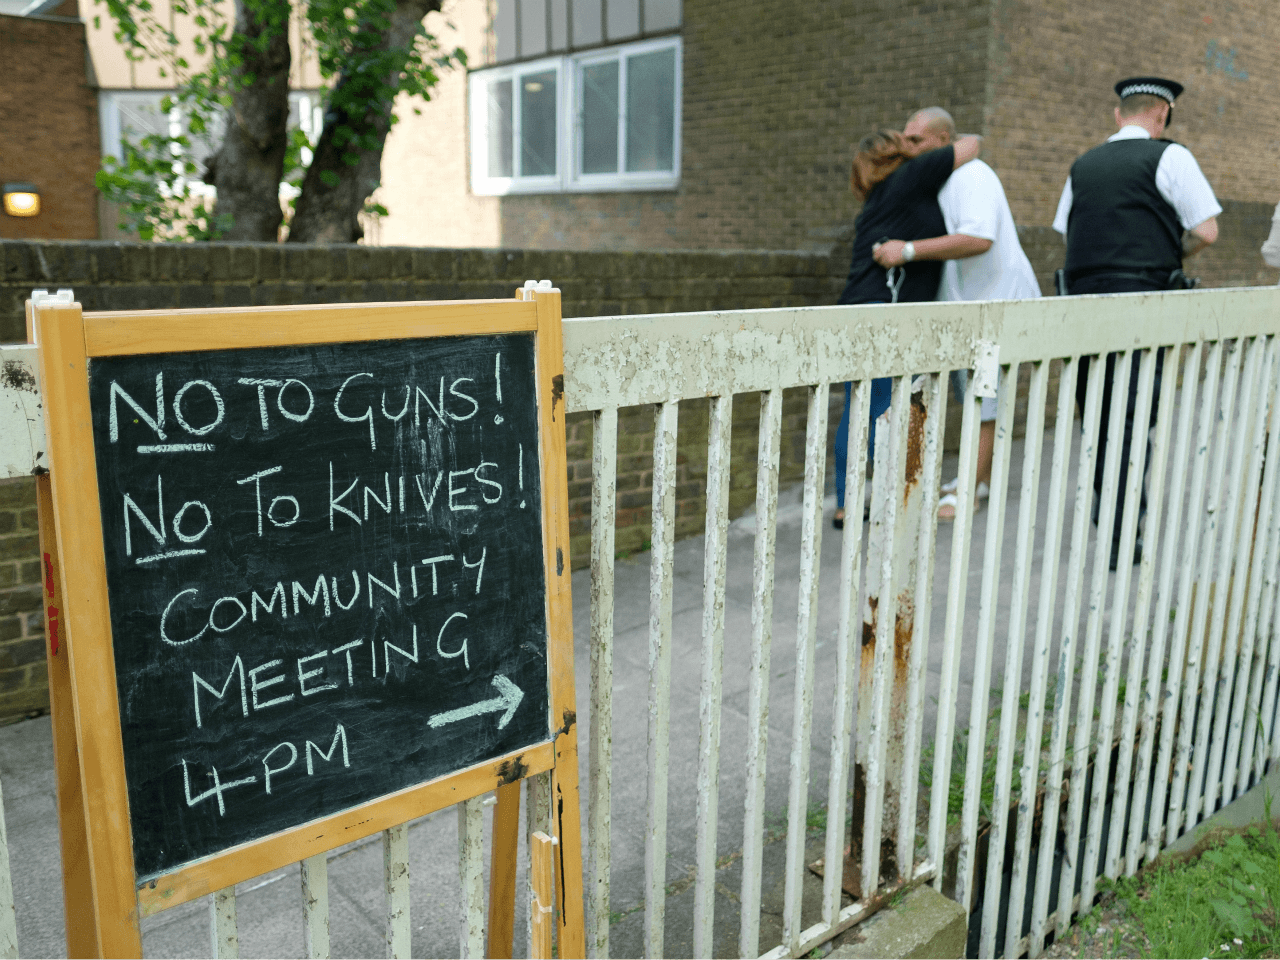 NO TO GUNS!
NO TO KNIVES!
COMMUNITY
MEETING
4PM →